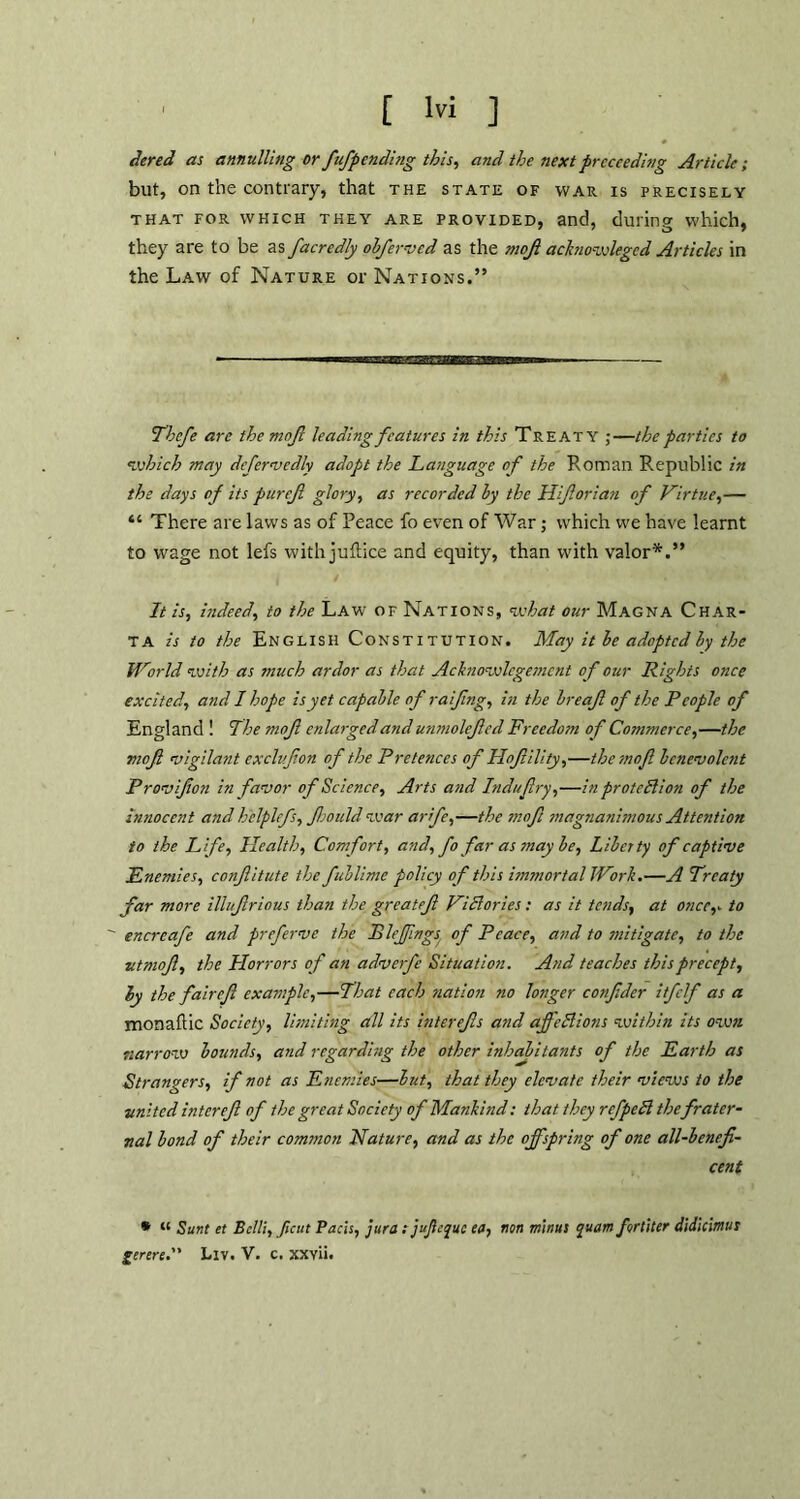 [ lvi ]
dered as annulling or ſuſpending this, and the next preceeding Article;
but, on the contrary, that THE STATE OF WAR IS PRECISELY
THAT FOR WHICH THEY ARE PROVIDED, and, during which,
they are to be as ſacredly obſerved as the moſt acknowleged Articles in
the LAW of NATURE or NATIONS.”
Theſe are the moſt leading features in this TREATY ;—the parties to
which may deſervedly adopt the Language of the Roman Republic in
the days of its pureſt glory, as recorded by the Hiſtorian of Virtue,—
“ There are laws as of Peace ſo even of War ; which we have learnt
to wage not leſs with juſtice and equity, than with valor*.”
It is, indeed, to the LAW OF NATIONS, what our MAGNA CHAR-
TA is to the ENGLISH CONSTITUTION. May it be adopted by the
World with as much ardor as that Acknowlegement of our Rights once
excited, and I hope is yet capable of raiſing, in the breaſt of the People of
England ! The moſt enlarged and unmoleſted Freedom of Commerce,—the
moſt vigilant excluſion of the Pretences of Hoſtility,—the moſt benevolent
Proviſion in favor of Science, Arts and Induſtry,—in protection of the
innocent and helpleſs, ſhould war ariſe,—the moſt magnanimous Attention
to the Life, Health, Comfort, and, ſo far as may be, Liberty of captive
Enemies, conſtitute the ſublime policy of this immortal Work.—A Treaty
far more illuſtrious than the greateſt Victories : as it tends, at once, to
encreaſe and preſerve the Bleſſings of Peace, and to mitigate, to the
utmoſt, the Horrors of an adverſe Situation. And teaches this precept,
by the faireſt example,—That each nation no longer conſider itſelf as a
monaſtic Society, limiting all its intereſts and affections within its own
narrow bounds, and regarding the other inhabitants of the Earth as
Strangers, if not as Enemies—but, that they elevate their views to the
united intereſt of the great Society of Mankind : that they reſpect the frater-
nal bond of their common Nature, and as the offspring of one all-benefi-
cent
* “ Sunt et Belli, ſicut Pacis, jura : juſteque ea, non minus quam fortiter didicimus
gerere.” LIV. V. c. xxvii.